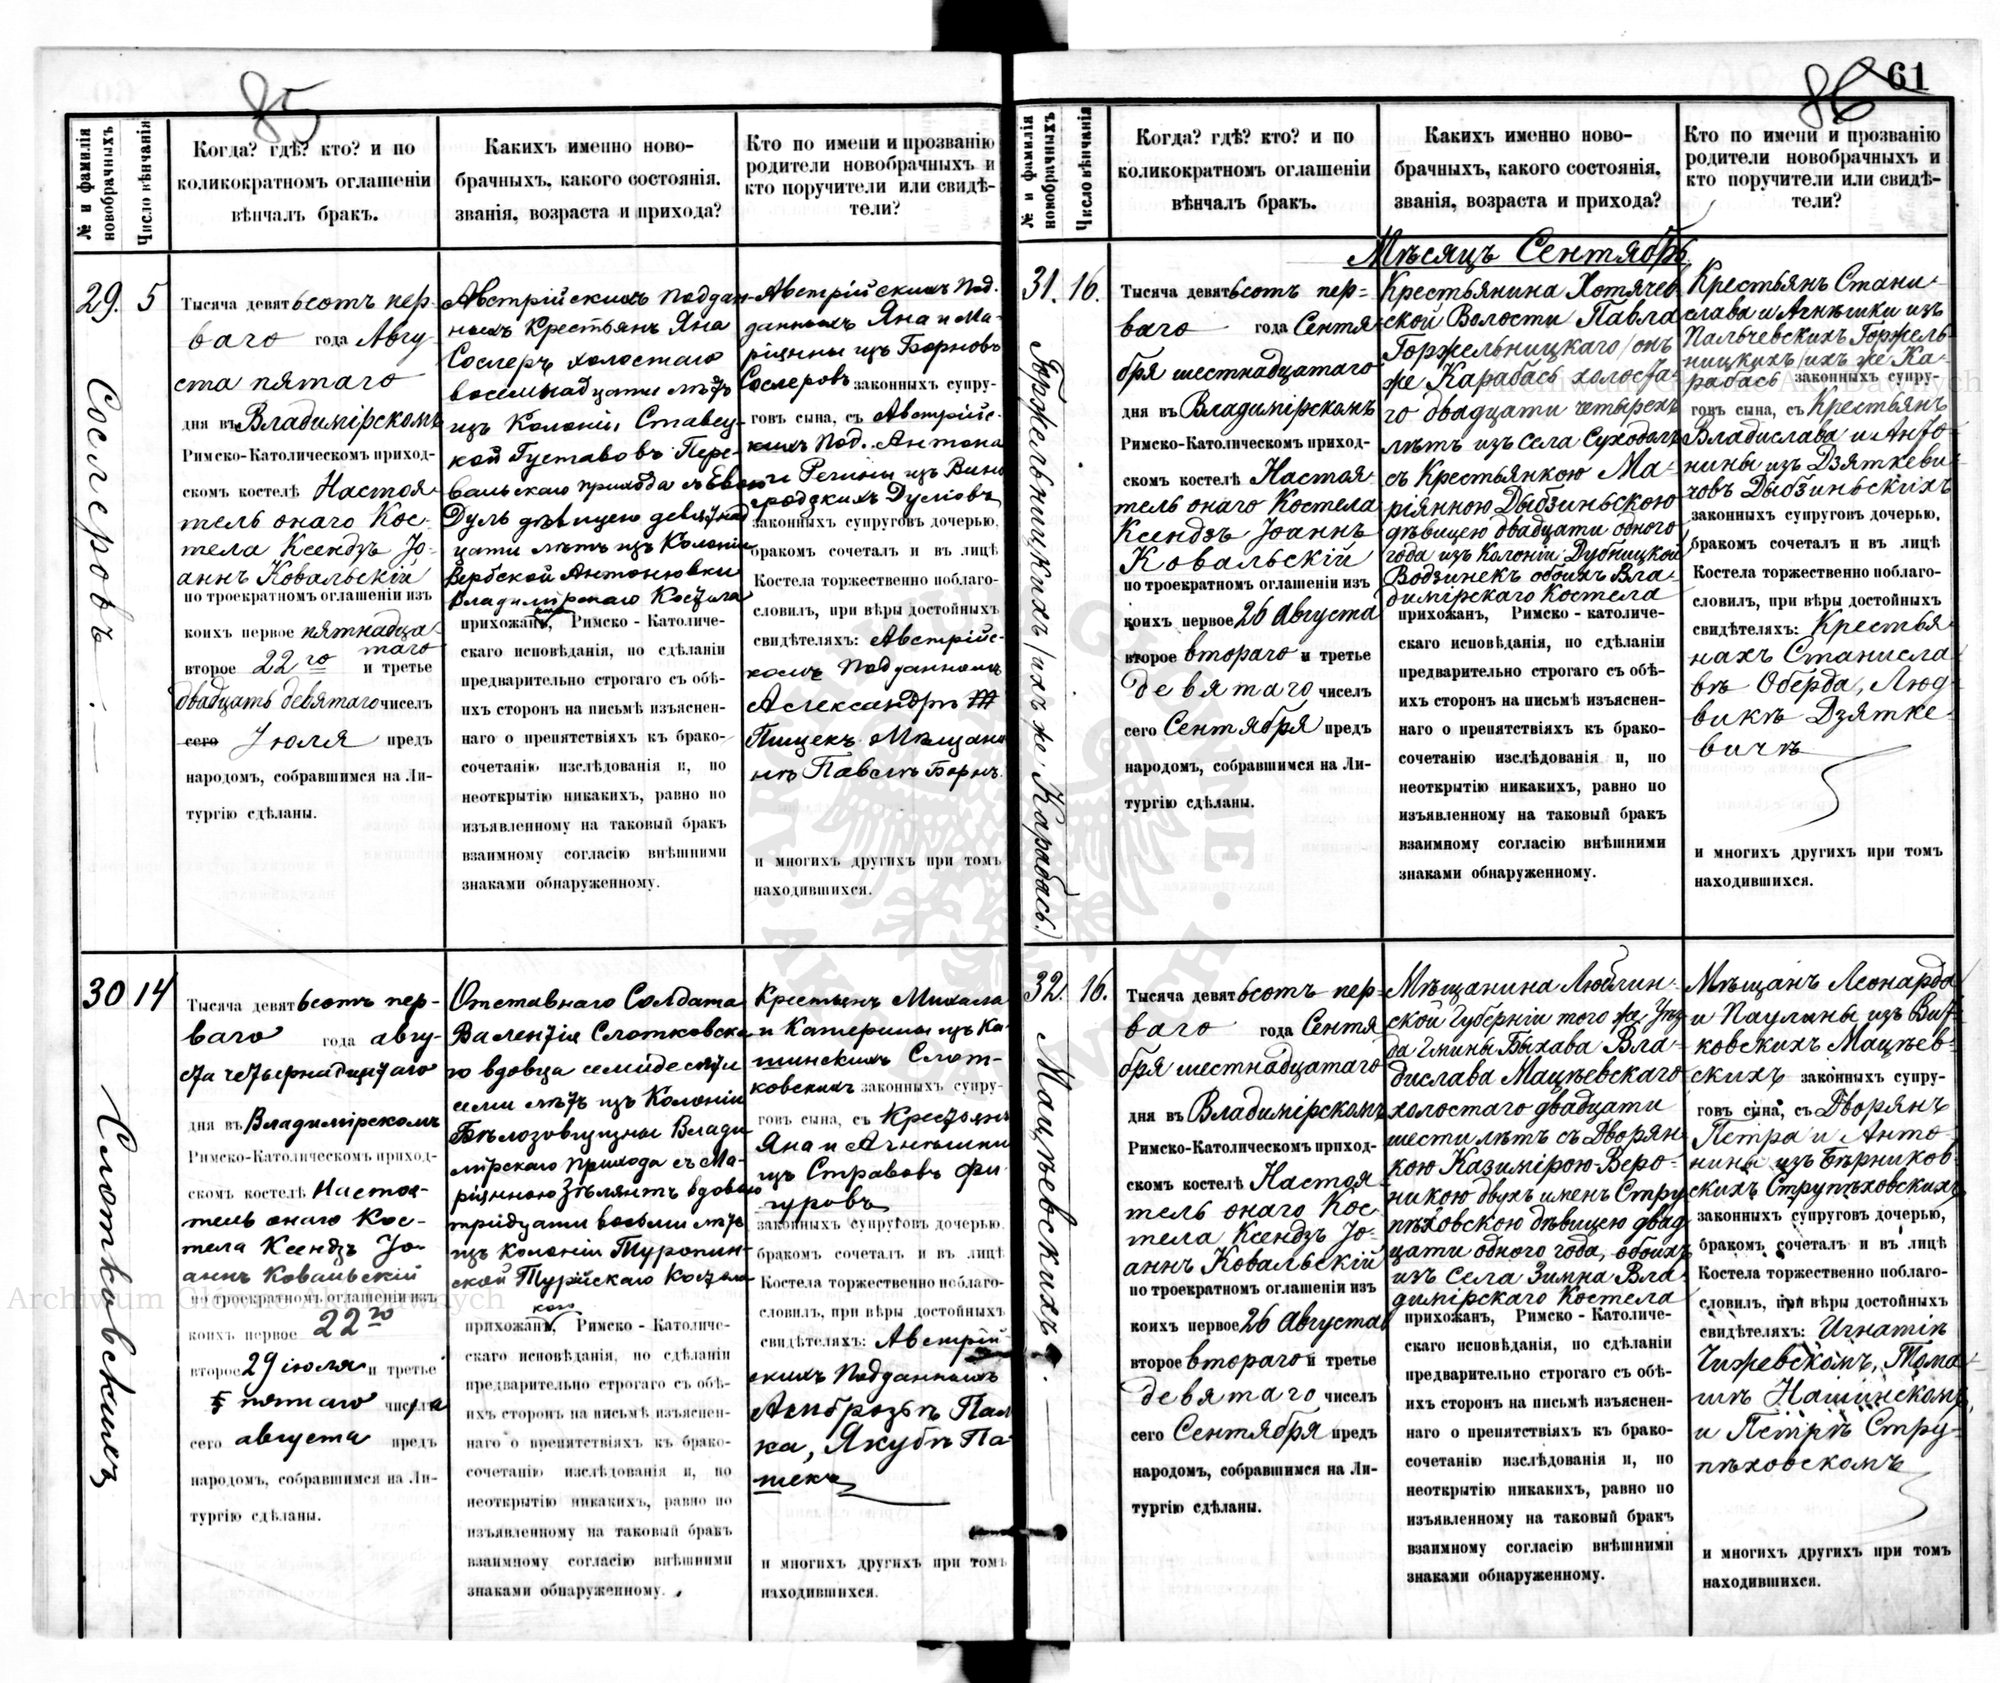 85
№ и фамилія новобрачныхъ
Число вѣнчанія
Когда? гдѣ? кто? и по
коликократномъ оглашеніи
вѣнчалъ бракъ.
Какихъ именно ново-
брачныхъ, какого состоянія,
званія, возраста и прихода?
Кто по имени и прозванію
родители новобрачныхъ и
кто поручители или свидѣ-
тели?
29.
5
Сослеровъ
Тысяча девятьсотъ пер-
ваго года Авгу
ста пятаго
дня въ Владимірскомъ
Римско-Католическомъ приход-
скомъ костелѣ Настоя-
тель онаго Кос-
тела Ксендзъ Іо-
аннъ Ковальскій
по троекратномъ оглашеніи изъ
коихъ первое пятнадца-
таго
второе 22го и третье
двадцать девятаго чиселъ
сего Іюля предъ
народомъ, собравшимся на Ли-
тургію сдѣланы.
Австрійскихъ поддан-
ныхъ Крестьянъ Яна
Сослеръ холостаго
восемнадцати лѣтъ
изъ Колоніи Ставец-
кой Густавовъ Пере-
вальскаго прихода съ Евою
Дуль дѣвицею девятнад
цати лѣтъ изъ Колоніи
Вербской Антоновки
Владимірскаго Костела
прихожанъ, Римско-Католиче-
скаго исповѣданія, по сдѣланіи
предварительно строгаго съ обѣ-
ихъ сторонъ на письмѣ изъяснен-
наго о препятствіяхъ къ брако-
сочетанію изслѣдованія и, по
неоткрытію никакихъ, равно по
изъявленному на таковый бракъ
взаимному согласію внѣшними
знаками обнаруженному.
Австрійскихъ Под-
данныхъ Яна и Ма-
ріянны изъ Борновъ
Сослеровъ законныхъ супру-
говъ сына, съ Австрійс-
кихъ Под. Антона
и Регины изъ Вино
градскихъ Дулювъ
законныхъ супруговъ дочерью,
бракомъ сочеталъ и въ лицѣ
Костела торжественно поблаго-
словилъ, при вѣры достойныхъ
свидѣтеляхъ: Австрійс-
комъ Подданномъ
Александрѣ
Пищекъ и Мѣщани
нѣ Павелъ Борнъ.
и многихъ другихъ при томъ
находившихся.
30
14
Слотковскихъ
Тысяча девятьсотъ пер-
ваго года авгу-
ста четырнадцатаго
дня въ Владимірскомъ
Римско-Католическомъ приход-
скомъ костелѣ Настоя-
тель онаго Кос-
тела Ксендзъ Іо-
аннъ Ковальскій
по троекратномъ оглашеніи изъ
коихъ первое 22го
второе 29 іюля и третье
пятаго числа
сего августа предъ
народомъ, собравшимся на Ли-
тургію сдѣланы.
Отставнаго Солдата
Валентія Слотковска
го вдовца семидесяти
семи лѣтъ изъ Колоніи
Бѣлозовщизны Влади
мірскаго прихода съ Ма-
ріянною Зѣлянтъ вдовою
тридцати восьми лѣтъ
изъ колоніи Туропин-
ской Турійскаго Костела
прихожанъ, Римско-Католиче-
скаго исповѣданія, по сдѣланіи
предварительно строгаго съ обѣ-
ихъ сторонъ на письмѣ изъяснен-
наго о препятствіяхъ къ брако-
сочетанію изслѣдованія и, по
неоткрытію никакихъ, равно по
изъявленному на таковый бракъ
взаимному согласію внѣшними
знаками обнаруженному.
Крестьянъ Михала
и Катерины изъ Ка-
шинскихъ Слот-
ковскихъ законныхъ супру-
говъ сына, съ Крестьянъ
Яна и Агнѣшки
изъ Стравовъ Фи-
гуровъ
законныхъ супруговъ дочерью,
бракомъ сочеталъ и въ лицѣ
Костела торжественно поблаго-
словилъ, при вѣры достойныхъ
свидѣтеляхъ: Австрій-
скихъ Подданныхъ
Амброзѣѣ Пал
ка, Якубѣ Па-
текъ
и многихъ другихъ при томъ
находившихся.
86 61
№ и фамилія новобрачныхъ
Число вѣнчанія
Когда? гдѣ? кто? и по
коликократномъ оглашеніи
вѣнчалъ бракъ.
Какихъ именно ново-
брачныхъ, какого состоянія,
званія, возраста и прихода?
Кто по имени и прозванію
родители новобрачныхъ и
кто поручители или свидѣ-
тели?
Мѣсяцъ Сентябрь
31.
16.
Горжельницкихъ (ихъ же Карабась.)
Тысяча девятьсотъ пер-
ваго года Сентя-
бря шестнадцатаго
дня въ Владимірскомъ
Римско-Католическомъ приход-
скомъ костелѣ Настоя-
тель онаго Костела
Ксендзъ Іоаннъ
Ковальскій
по троекратномъ оглашеніи изъ
коихъ первое 26 Августа
второе втораго и третье
девятаго чиселъ
сего Сентября предъ
народомъ, собравшимся на Ли-
тургію сдѣланы.
Крестьянина Хотячев
ской Волости Павла
Горжельницкаго (онъ
же Карабась холоста-
го двадцати четырехъ
лѣтъ изъ села Суходолъ
съ Крестьянкою Ма-
ріянною Дыбзиньскою
дѣвицею двадцати одного
года изъ Колоніи Дубницкой
Водзинекъ обоихъ Вла-
димірскаго Костела
прихожанъ, Римско-католиче-
скаго исповѣданія, по сдѣланіи
предварительно строгаго съ обѣ-
ихъ сторонъ на письмѣ изъяснен-
наго о препятствіяхъ къ брако-
сочетанію изслѣдованія и, по
неоткрытію никакихъ, равно по
изъявленному на таковый бракъ
взаимному согласію внѣшними
знаками обнаруженному.
Крестьянъ Стани-
слава и Агнѣшки изъ
Пальчевскихъ Горжель-
ницкихъ (ихъ же Ка-
рабась законныхъ супру-
говъ сына, съ Крестьянъ
Владислава и Анто-
нины изъ Дзяткеви-
човъ Дыбзиньскихъ
законныхъ супруговъ дочерью,
бракомъ сочеталъ и въ лицѣ
Костела торжественно поблаго-
словилъ, при вѣры достойныхъ
свидѣтеляхъ: Крестья
нахъ Станисла-
вѣ Оберда, Люд-
викѣ Дзятке-
вичъ
и многихъ другихъ при томъ
находившихся.
32.
16.
Мацѣевскихъ.
Тысяча девятьсотъ пер-
ваго года Сентя
бря шестнадцатаго
дня въ Владимірскомъ
Римско-Католическомъ приход-
скомъ костелѣ Настоя-
тель онаго Кос-
тела Ксендзъ Іо-
аннъ Ковальскій
по троекратномъ оглашеніи изъ
коихъ первое 26 Августа
второе втораго и третье
девятаго чиселъ
сего Сентября предъ
народомъ, собравшимся на Ли-
тургію сдѣланы.
Мѣщанина Люблин-
ской Губерніи того же Уѣз
да Гмины Быхава Вла-
дислава Мацѣевскаго
холостаго двадцати
шести лѣтъ съ Дворян-
кою Казимірою-Веро-
никою двухъ именъ Стру
пѣховскою дѣвицею двад
цати одного года, обоихъ
изъ села Зимна Вла-
димірскаго Костела
прихожанъ, Римско-Католиче-
скаго исповѣданія, по сдѣланіи
предварительно строгаго съ обѣ-
ихъ сторонъ на письмѣ изъяснен-
наго о препятствіяхъ къ брако-
сочетанію изслѣдованія и, по
неоткрытію никакихъ, равно по
изъявленному на таковый бракъ
взаимному согласію внѣшними
знаками обнаруженному.
Мѣщанъ Леонарда
и Паулины изъ Вит-
ковскихъ Мацѣев-
скихъ законныхъ супру-
говъ сына, съ Дворянъ
Петра и Анто-
нины изъ Бѣрников-
скихъ Струпѣховскихъ
законныхъ супруговъ дочерью,
бракомъ сочеталъ и въ лицѣ
Костела торжественно поблаго-
словилъ, при вѣры достойныхъ
свидѣтеляхъ: Игнатіѣ
Чижевскомъ, Тома-
шѣ Нашинскомъ,
и Петрѣ Стру-
пѣховскомъ
и многихъ другихъ при томъ
находившихся.
Archiwum Główne Akt Dawnych